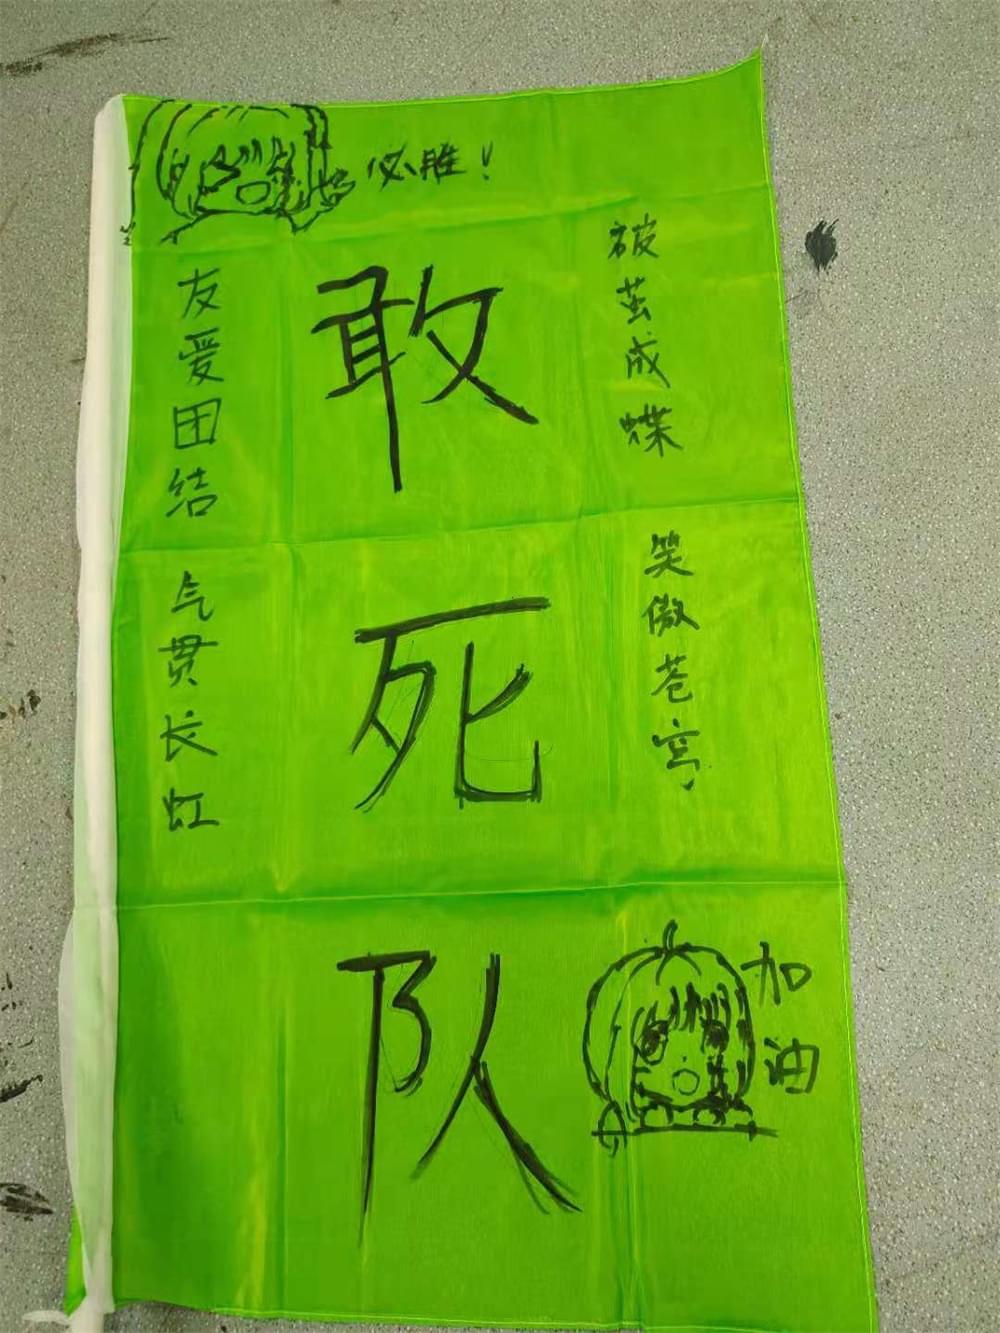 必胜！
被茧成蝶
笑傲苍穹
敢死队
友爱团结
气贯长虹
加油